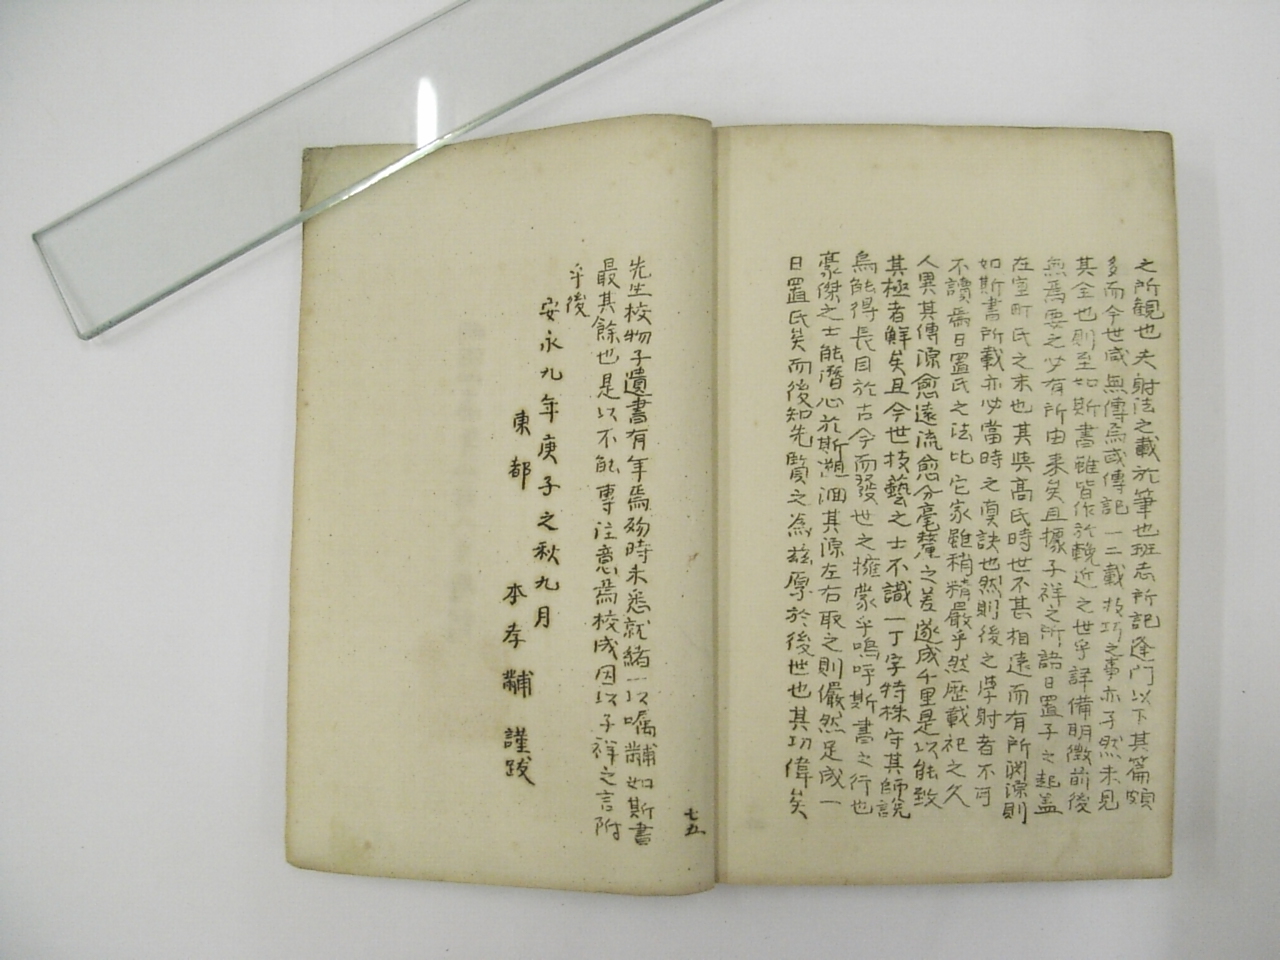 之所観也夫射法之載於筆也班志所記逢門以下其篇頗
多而今世咸無傳焉或傳記一二載技巧之事亦孑然未見
其全也則至如斯書雖皆作於輓近之世乎詳備明徴前後
無焉要之必有所由来矣且據子祥之所語日置子之起盖
在室町氏之末也其與高氏時世不甚相遠而有所淵源則
如斯書所載亦必當時之真訣也然則後之學射者不可
不讀焉日置氏之法比它家雖稍精嚴乎然歴載祀之久
人異其傳源愈遠流愈分毫釐之差遂成千里是以能致
其極者鮮矣且今世技藝之士不識一丁字特株守其師説
烏能得長目於古今而發世之擁蒙乎嗚呼斯書之行也
豪傑之士能潛心於斯遡洄其源左右取之則儼然足成一
日置氏矣而後知先賢之為益厚於後世也其功偉矣
先生校物子遺書有年焉歿時未悉就緒一以嘱黼如斯書
最其餘也是以不能專注意焉校成因以子祥之言附
乎後
安永九年庚子之秋九月
東都 本孝黼謹跋
七五